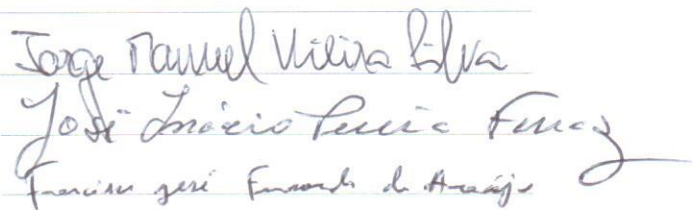 Jorge Manuel Vieira Silva
José Inácio Pereira Ferraz
Francisco José Fernandes de Araújo